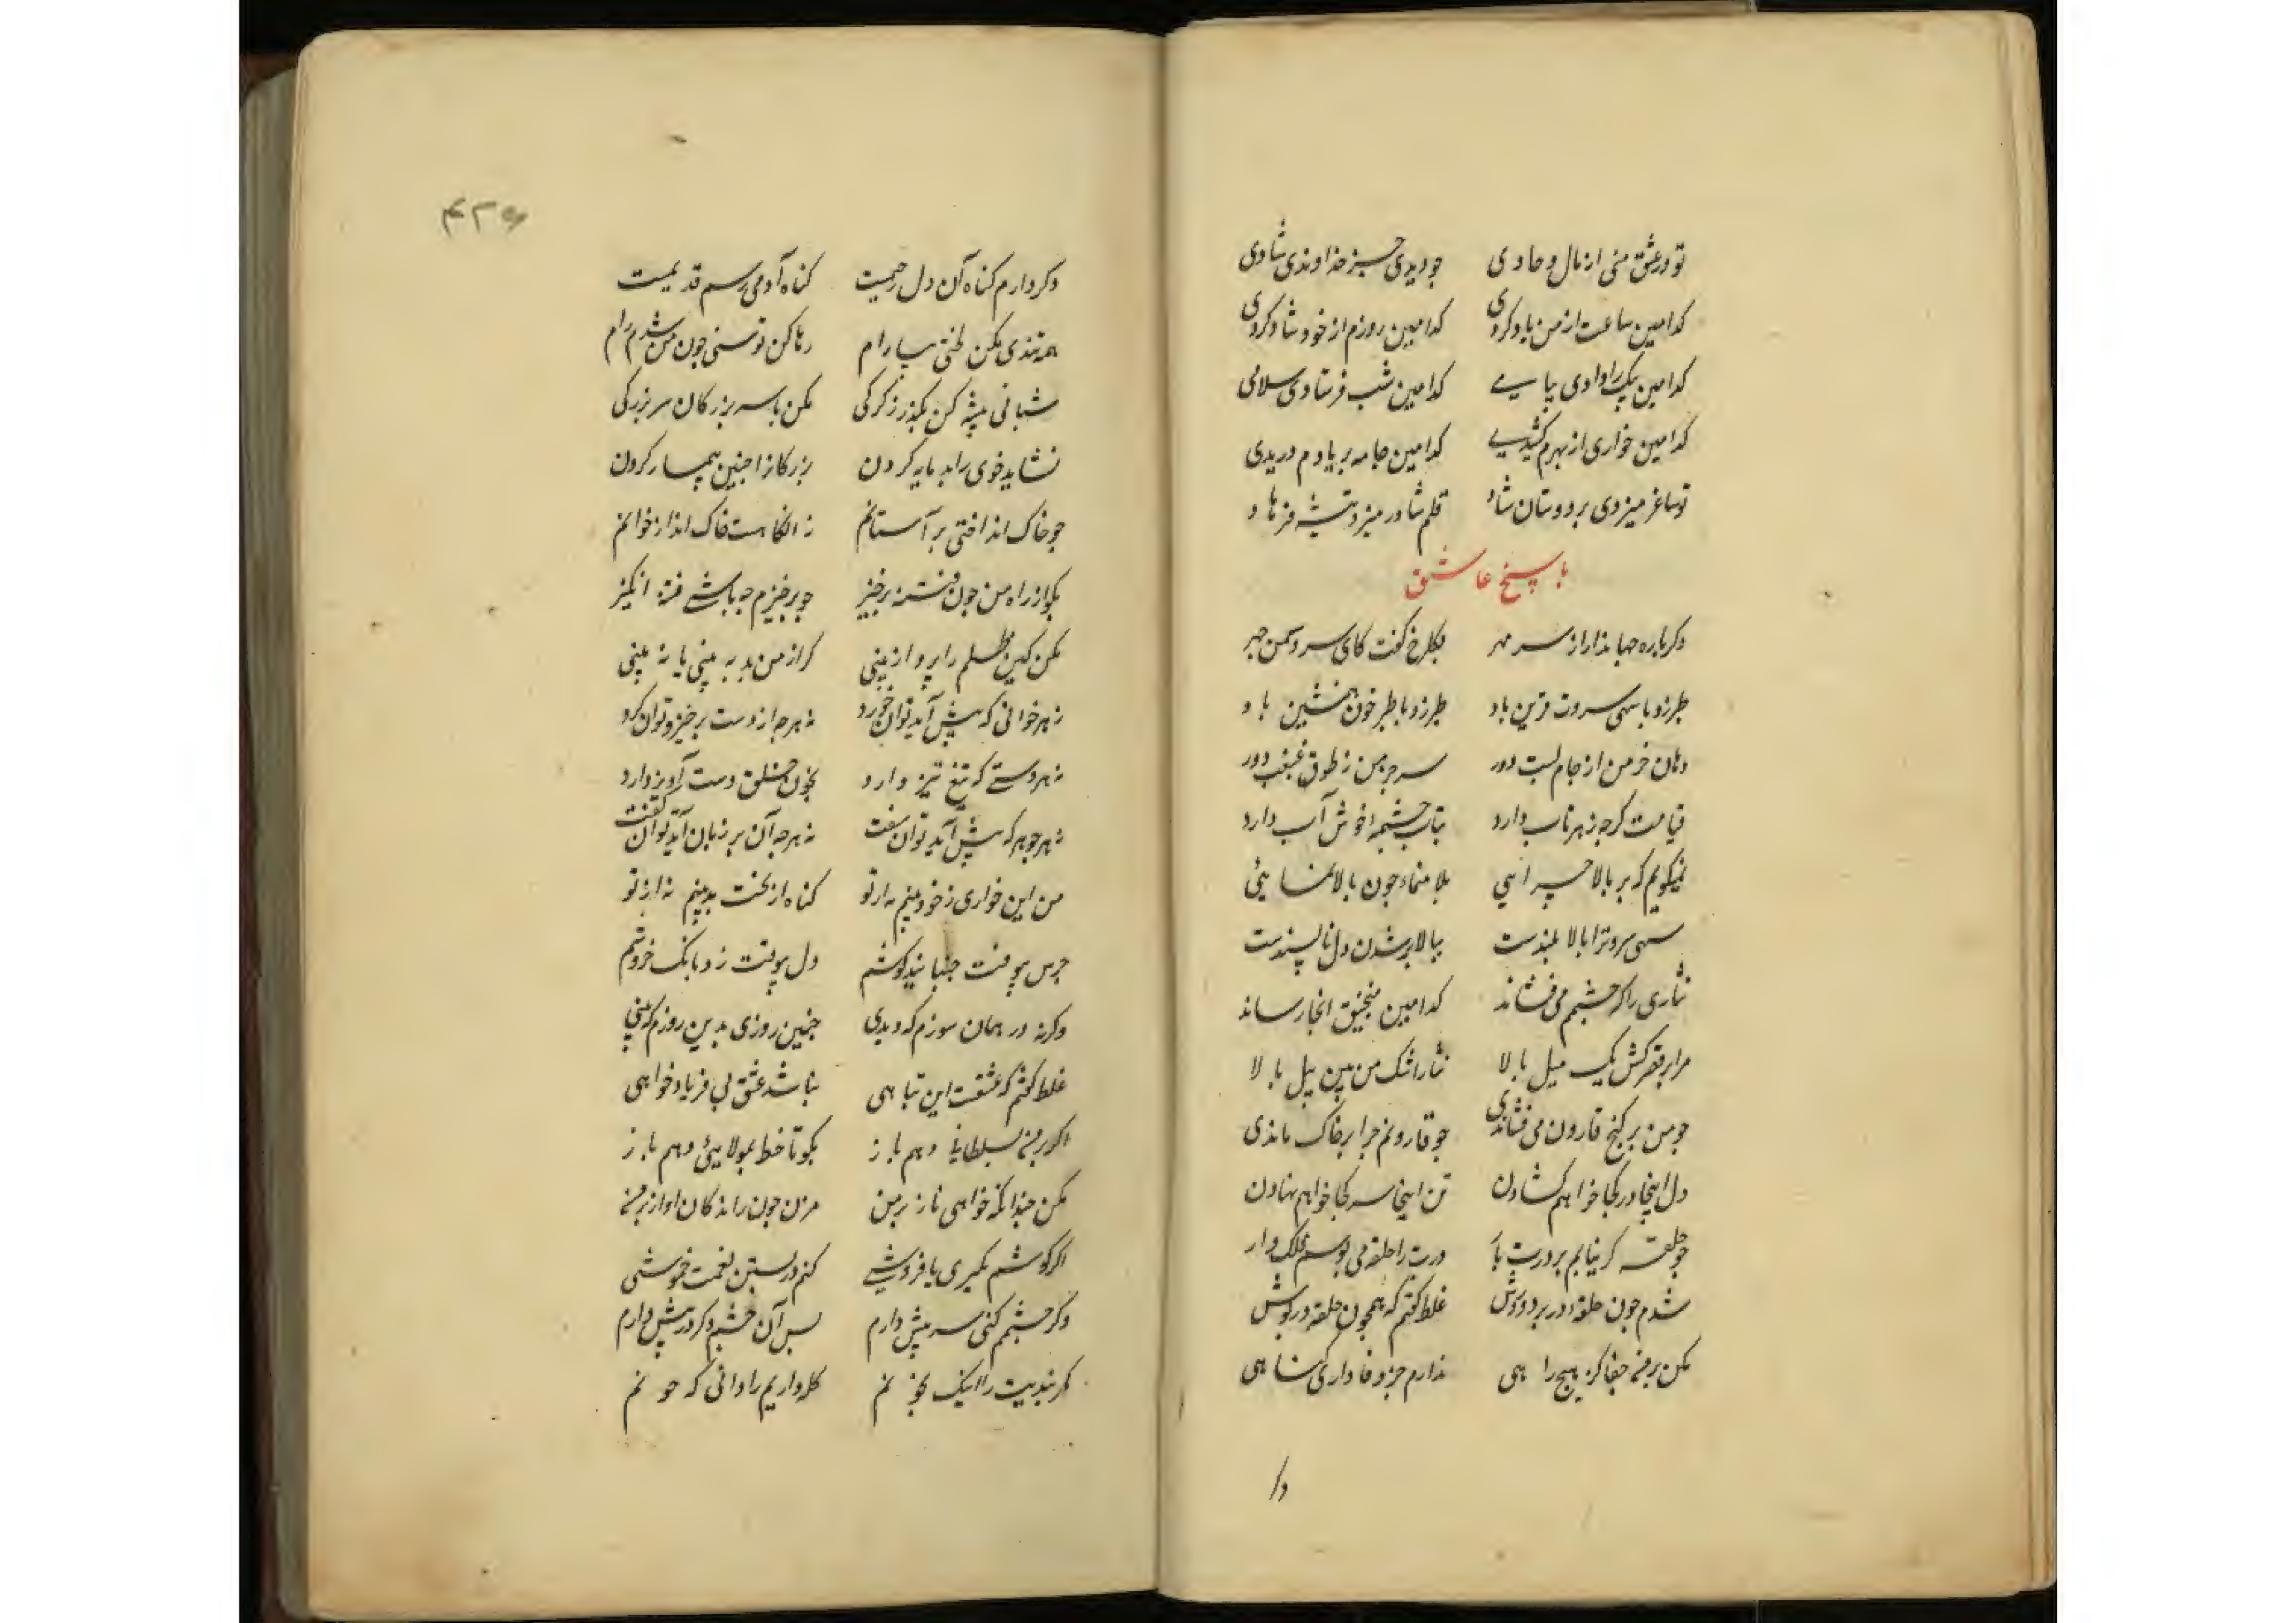 تو در عشق منی از مال و جادوی جو دیدی جز خداوندی شادی
کدامین ساعت از من یاد کردی کدامین روزم از خود شاد کردی
کدامین پیک را دادی پیامے کدامین شب فرستادی سلامی
کدامین خواری از بهرم کشیدے کدامین جامه بر یادم دریدی
تو ساغر میزدی بر دوستان شاد قلم شاور میزد تیشه فرهاد
پاسخ عاشق
دکرباره جهاندار از سر مهر بکلرخ کفت کای سرو سمن جهر
طبرزد با سهی سروت قرین باد طبرزد با طبرخون همنشین باد
دهان جز من از جام لبت دور سر جز من ز طوق غبغبت دور
قیامت کرجه زهر ناب دارد بتاب چشمه خوش آب دارد
نمیکویم که بر بالا چرایی بلا منماء جون بالا نمایئی
سهی سرو ترا بالا بلندست ببالا بر شدن دل ناپسندست
نثاری را که چشمم می فشاند کدامین منجنیق انجا رساند
مرا بر قصر کش یک میل بالا نثار اشک من بین پیل بالا
جو من بر کنج قارون می فشاندی جو قارونم جرا بر خاک ماندی
دل اینجا در کجا خواهم کشادن تن اینجا سر کجا خواهم نهادن
جو حلقه کر نیابم بر درت بار درت را حلقه می بوسم فلک وار
شدم جون حلقه در بر دوش غلط کفتم که همجون حلقه در کوش
مکن بر من جفا کز هیچ راهی ندارم جز وفاداری کناهی
وکر
۴۲۶
دکر دارم کناه آن دل رحیمست کناه آدمی رسم قدیمست
همه تندی مکن لختی بیارام رها کن توسنی جون من شدم رام
شبانی پیشه کن بکذر ز کرکی مکن با سر بزرکان سر بزرکی
نشاید خوی را بد مایه کردن بزرکانرا جنین بیمار کردن
جو خاک انداختی بر آستانم نه انکاهست خاک انداز خوانم
بکو از راه من جون فتنه برخیز جو برخیزم جه باشے فتنه انکیز
مکن کین ظلم را پرواز بینی کر از من بد ببینی یا نه بینی
نه هر خوانی که پیش آید توان خورد نه هرجه از دست برخیزد توان کرد
نه هر دستے که تیغ تیز دارد بخون خلق دست آویز دارد
نه هر جوهر که پیش آید توان سفت نه هرجه آن بر زبان آید توان کفت
من این خواری ز خود بینم نه از تو کناه از بخت بد بینم نه از تو
جرس بیوقت جنبانید کوشم دل بیوقت زد بانک خروشم
وکرنه در همان سوزم که دیدی جنین روزی بدین روزم که بینی
غلط کفتم که عشقست این تباهی نباشد عشق بی فریاد خواهی
اکر بر من بسلطانی دهم باز بکو تا خط بمولایئ دهم باز
مکن جندانکه خواهی ناز بر من مزن جون راندکان آواز بر من
اکر کوشم بکیری یا فروشے کنم در بستن نغمت خموشی
وکر چشمم کنی سر پیش دارم بس آن چشم دکر در پیش دارم
کمر بندیت را اینک بخونم کله داریم را دانی که جونم